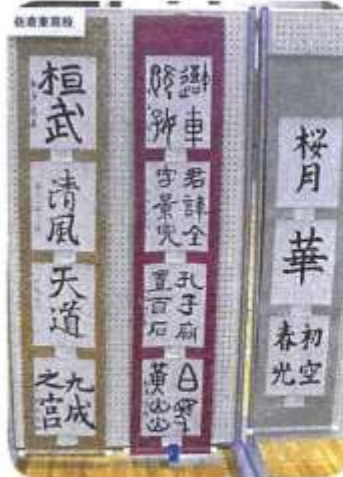 佐倉東高校
桓武
清風
天道
九成
之宮
車
君諱全
字景完
孔子廟
置百石
桜月
華
初空
春光